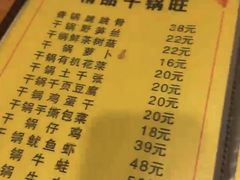 精品干锅旺
酱锅跳跳骨 38元
干锅野笋丝 22元
干锅茶树菇 22元
干锅萝卜 16元
干锅有机花菜 20元
干锅土干张 20元
干锅千页豆腐 20元
干锅鸡蛋干 20元
干锅手撕包菜 18元
干锅仔鸡 39元
干锅鱿鱼虾 48元
牛蛙
牛